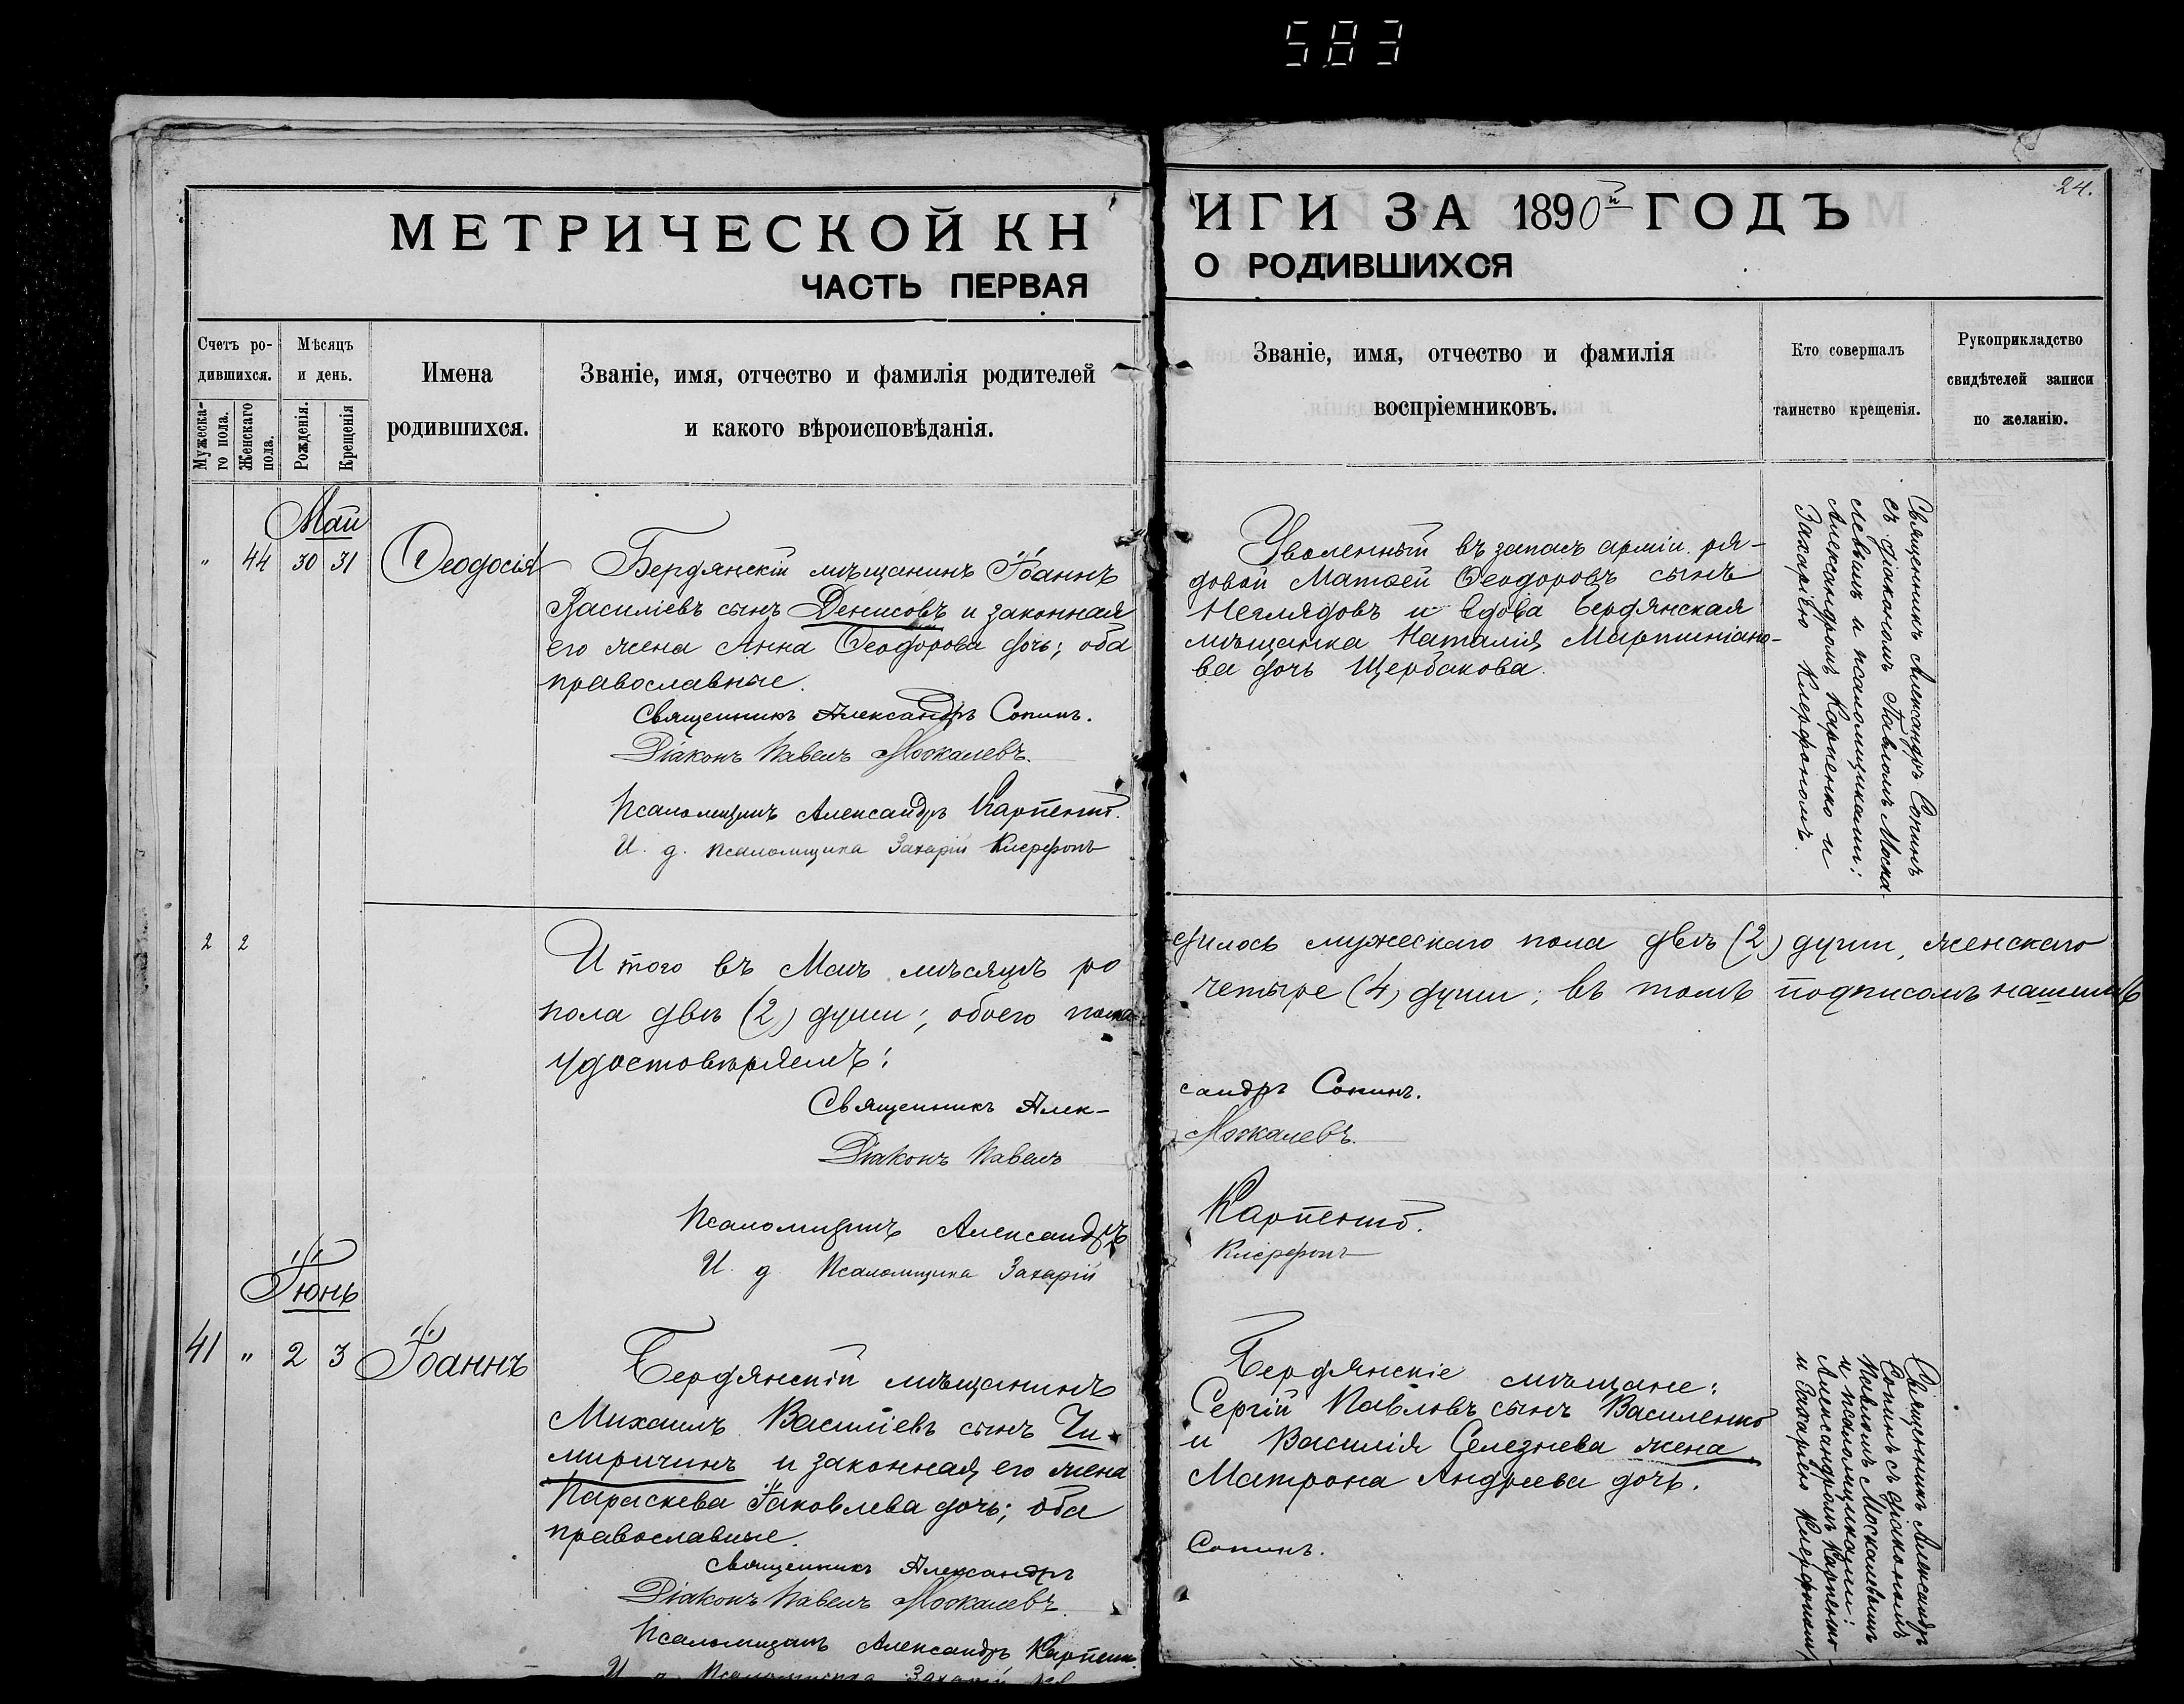 583
24.
МЕТРИЧЕСКОЙ КН
ИГИ ЗА 1890й ГОДЪ
ЧАСТЬ ПЕРВАЯ
О РОДИВШИХСЯ
Счетъ ро-
дившихся.
Мужеска-
го пола.
Женскаго
пола.
Мѣсяцъ
и день.
Рожденія.
Крещенія
Имена
родившихся.
Званіе, имя, отчество и фамилія родителей
и какого вѣроисповѣданія.
Званіе, имя, отчество и фамилія
воспріемниковъ.
Кто совершалъ
таинство крещенія.
Рукоприкладство
свидѣтелей записи
по желанію.
Май
" 44 30 31
Ѳеодосія
Бердянскій мѣщанинъ Іоаннъ
Василіевъ сынъ Денисовъ и законная
его жена Анна Ѳеодорова дочь; оба
православные.
Священникъ Александръ Сопинъ.
Діаконъ Павелъ Москалевъ.
Псаломщикъ Александръ Карпенко.
И. д. псаломщика Захарій
Уволенный въ запасъ арміи ря-
довой Матѳей Ѳеодоровъ сынъ
Неглядовъ и вдова бердянская
мѣщанка Наталія Мартиніано-
ва дочь Щербакова.
Священникъ Александръ Сопинъ
съ діакономъ Павломъ Моска-
левымъ и псаломщиками:
Александромъ Карпенко и
Захаріею
2 2
Итого въ Маѣ мѣсяцѣ ро
дилось мужескаго пола двѣ (2) души, женскаго
пола двѣ (2) души; обоего пола
четыре (4) души; въ томъ подписомъ нашимъ
удостовѣряемъ:
Священникъ Алек-
сандръ Сопинъ.
Діаконъ Павелъ
Москалевъ.
Псаломщикъ Александръ
Карпенко.
И. д. Псаломщика Захарій
Іюнь
41 " 2 3
Іоаннъ
Бердянскій мѣщанинъ
Михаилъ Василіевъ сынъ Чи-
миричинъ и законная его жена
Параскева Іаковлева дочь; оба
православные.
Священникъ Александръ
Сопинъ.
Діаконъ Павелъ Москалевъ.
Псаломщикъ Александръ Карпенк
Бердянскіе мѣщане:
Сергій Павловъ сынъ Василенко
и Василія Селезнева жена
Матрона Андреева дочь.
Священникъ Александръ
Сопинъ съ діакономъ
Павломъ Москалевымъ
и псаломщиками:
Александромъ Карпенко
и Захаріею